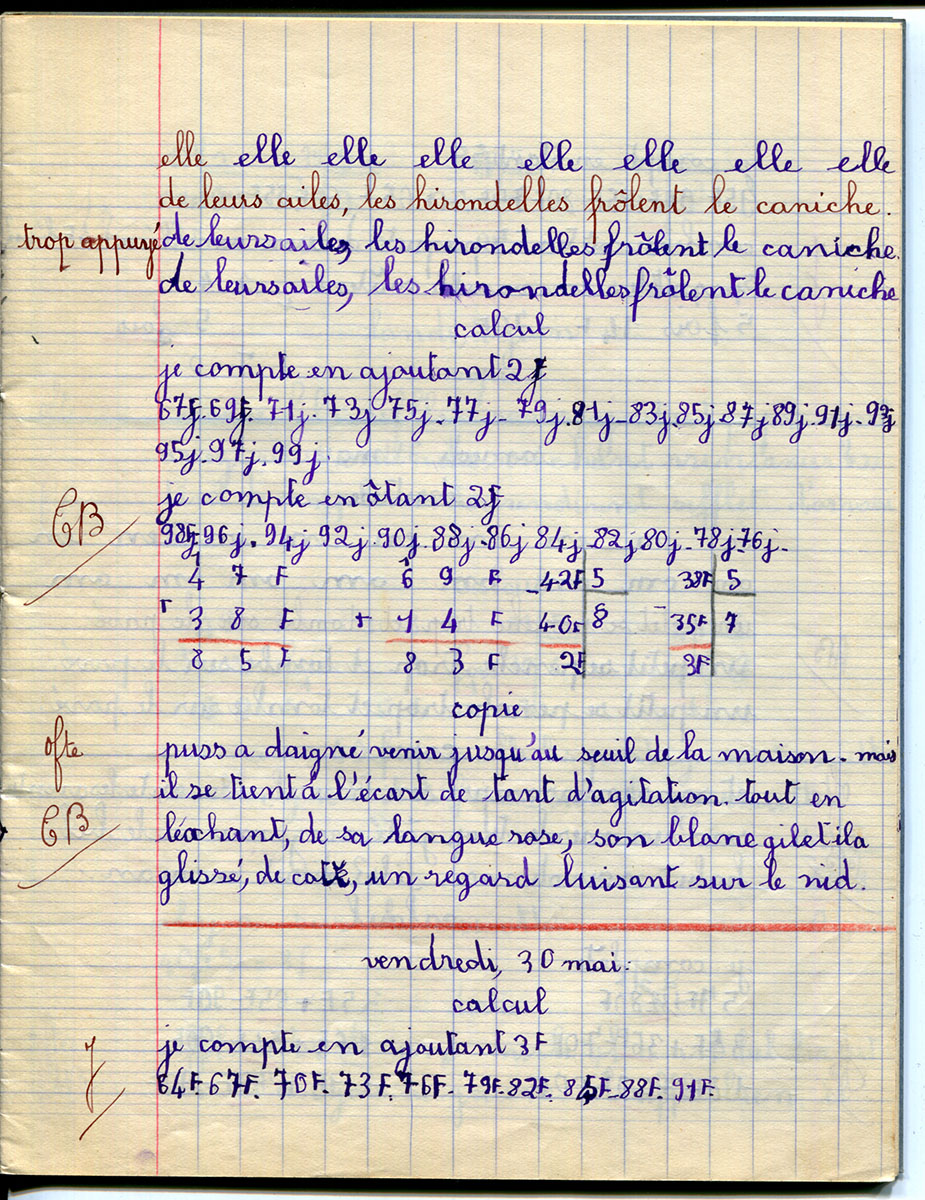 elle elle elle elle elle elle elle elle
de leurs ailes, les hirondelles frôlent le caniche.
trop appuyé de leurs ailes, les hirondelles frôlent le caniche.
de leurs ailes, les hirondelles frôlent le caniche
calcul
je compte en ajoutant 2F
67F. 69F. 71j. 73j 75j. 77j. 79j. 81j. 83j. 85j. 87j 89j. 91j. 93j
95j. 97j. 99j.
je compte en ôtant 2F
TB 98F. 96j. 94j 92j. 90j. 88j. 86j 84j. 82j 80j. 78j. 76j.
4 7 F 6 9 F - 42F 5 38F 5
+ 3 8 F + 1 4 F 40F 8 - 35F 7
8 5 F 8 3 F 2F 3F
copie
puss a daigné venir jusqu'au seuil de la maison. mais
il se tient à l'écart de tant d'agitation. tout en
TB léchant, de sa langue rose, son blanc gilet il a
glissé, de côté, un regard luisant sur le nid.
vendredi, 30 mai.
calcul
je compte en ajoutant 3F
64F. 67F. 70F. 73F. 76F. 79F. 82F. 85F. 88F. 91F.